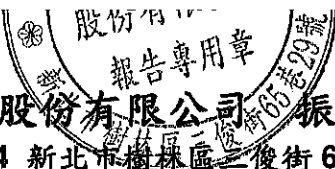 股份有限
報告專用章
樹林區三俊街65巷29號
股份有限公司 振
4 新北市樹林區三俊街6